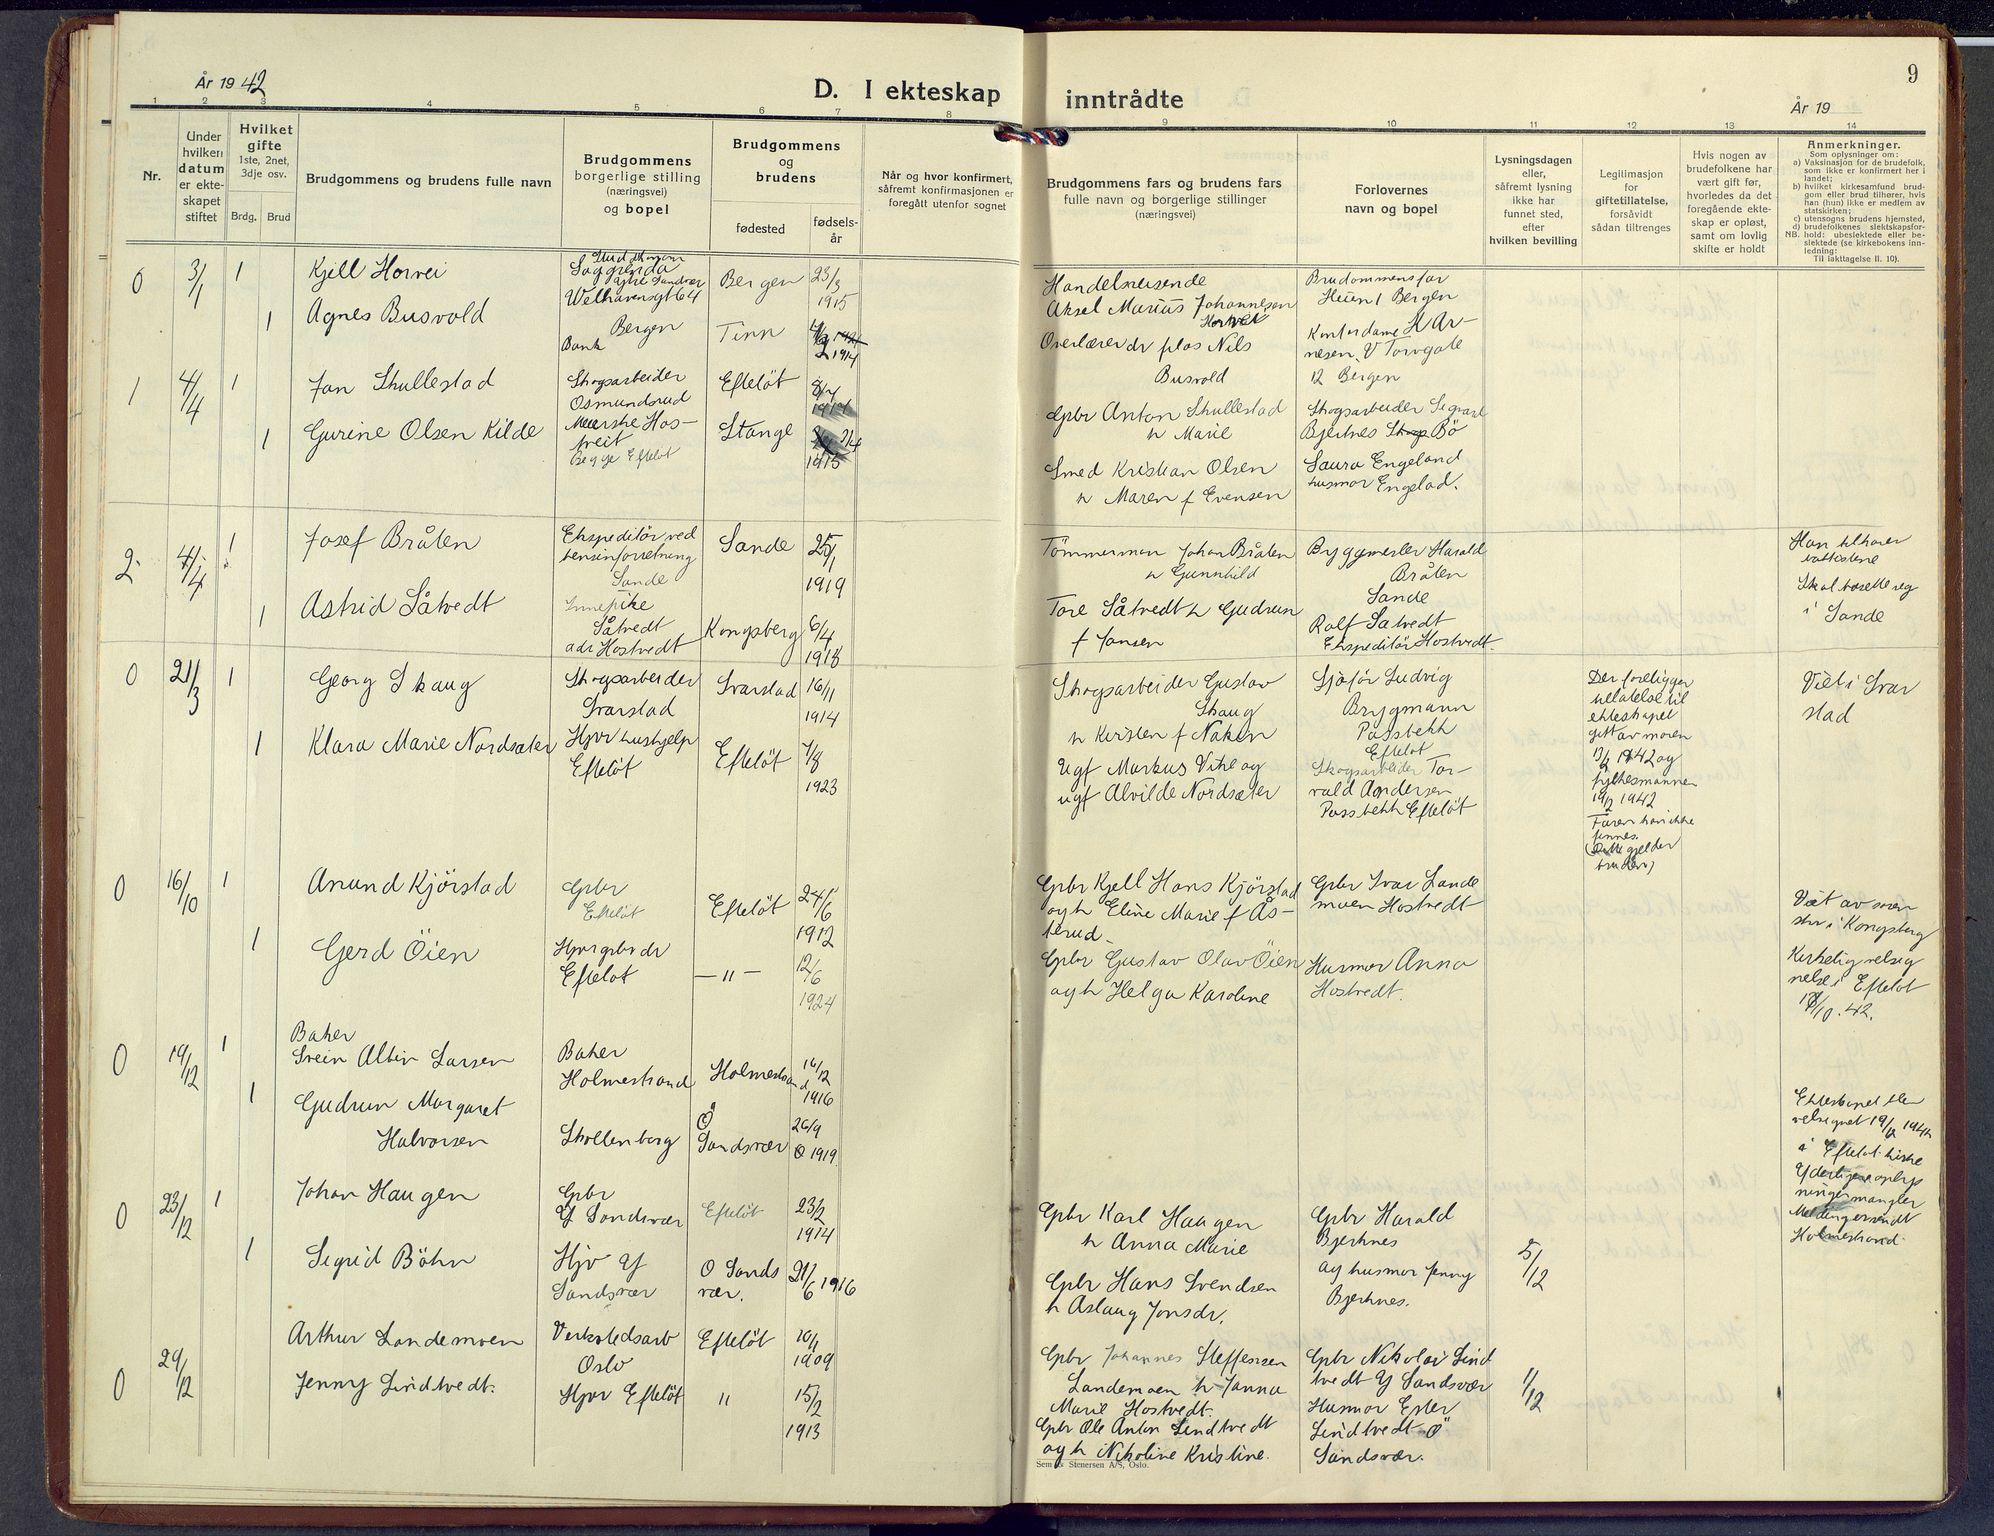 År 19 42
D. I ekteskap inntrådte
År 19
9
1 2 3 4 5 6 7 8 9 10 11 12 13 14
Nr.
Under hvilken datum er ekteskapet stiftet
Hvilket gifte
1ste, 2net, 3dje osv.
Brdg. Brud
Brudgommens og brudens fulle navn
Brudgommens
borgerlige stilling
(næringsvei)
og bopel
Brudgommens
og
brudens
fødested
fødsels-
år
Når og hvor konfirmert,
såfremt konfirmasjonen er
foregått utenfor sognet
Brudgommens fars og brudens fars
fulle navn og borgerlige stillinger
(næringsvei)
Forlovernes
navn og bopel
Lysningsdagen
eller,
såfremt lysning
ikke har
funnet sted,
efter
hvilken bevilling
Legitimasjon
for
giftetillatelse,
forsåvidt
sådan tiltrenges
Hvis nogen av
brudefolkene har
vært gift før,
hvorledes da det
foregående ekte-
skap er opløst,
samt om lovlig
skifte er holdt
Anmerkninger.
Som oplysninger om:
a) Vaksinasjon for de brudefolk,
som ikke er konfirmert her i
landet;
b) hvilket kirkesamfund brud-
gom eller brud tilhører, hvis
han (hun) ikke er medlem av
statskirken;
c) utensogns brudens hjemsted,
d) brudefolkenes slektskapsfor-
NB. hold: ubeslektede eller be-
slektede (se kirkebokens inn-
ledning:
Til iakttagelse II. 10).
0 3/1 1
Kjell Horvei
Welhavensgt 64
Bergen
Bergen
23/3
1915
Handelsreisende
Aksel Marius Johannesen
Brudommens far
Heien 1 Bergen
1
Agnes Busvold
Bank
Tinn
1914
Overlærer dr plas Nils
Busvold
Kontordame K Ar-
nesen, V Torvgate
12 Bergen
1 4/4 1
Jan Skullestad
Skogsarbeider
Osmundsrud
Efteløt
8/4
Gpbr Anton Skullestad
h Marie
Skogsarbeider Sigvart
Bjertnes Bö
1
Gurine Olsen Kilde
Meierske Hos-
tveit
Begge Efteløt
Stange
1915
Smed Kristian Olsen
h Maren f Evensen
Laura Engeland
husmor Engelad.
2 4/4 1
Josef Bråten
Ekspeditör ved
bensinforretning
Sande
Sande
25/1
1919
Tömmerman Johan Bråten
h Gunnhild
Byggmester Harald
Bråten
Sande
Han tilhører
Skal bosette seg
i Sande
1
Astrid Såtvedt
Innepike
Såtvedt
adr Hostvedt
Kongsberg
6/4
1918
Tore Såtvedt h Gudrun
f Jansen
Rolf Såtvedt
Ekspeditör Hostvedt.
0 21/3 1
Georg Skaug
Skogsarbeider
Svarstad
Svarstad
16/11
1914
Skogsarbeider Gustav
Skaug
h Kirsten f Naken
Sjåför Ludvig
Brygmann
Passbekk
Efteløt
Der foreligger
tillatelse til
ekteskapet
gitt av moren
13/2 1942 og
fylkesmannen
19/2 1942
Faren kan ikke
finnes.
(Dette gjelder
bruden)
Viet i Svar
stad
1
Klara Marie Nordsæter
Hjvr hushjelp
Efteløt
Efteløt
7/8
1923
Ugf Markus Vike og
ugf Alvilde Nordsæter
Skogsarbeider Tor-
vald Andersen
Passbekk Efteløt
0 16/10 1
Anund Kjörstad
Gpbr
Efteløt
Efteløt
24/6
1912
Gpbr Kjell Hans Kjörstad
og h Eline Marie f Ås-
terud
Gpbr Ivar Lande
moen Hostvedt
Viet av soren
skr i Kongsberg
Kirkelig velsig
nelse i Efteløt
18/10. 42.
1
Gerd Öien
Hjvr gpbr dr
Efteløt
— " —
12/6
1924
Gpbr Gustav Olav Öien
og h Helga Karoline
Husmor Anna
Hostvedt.
0 19/12 1
Baker
Svein Albin Larsen
Baker
Holmestrand
Holmestrand
16/12
1916
1
Gudrun Margaret
Halvorsen
Skollenborg
Ö
Sandsvær
26/9
1919.
Ekteskapet blev
velsignet 19/12 1942
i Efteløt kirke
Yderligere oplys
ninger mangler
Melding er sendt
Holmestrand.
0 23/12 1
Johan Haugen
Gpbr
Y Sandsvær
Efteløt
23/2
1914
Gpbr Karl Haugen
h Anna Marie
Gpbr Harald
Bjerknes
og husmor Jenny
Bjerknes.
5/12
1
Sigrid Böhn
Hjv Y
Sandsvær
O Sands
vær.
21/6 1916
Gpbr Hans Svendsen
h Aslaug Jonsdr.
0 29/12
Arthur Landemoen
Verkstedsarb
Oslo
Efteløt
10/1
1909
Gpbr Johannes Steffensen
Landemoen h Janna
Marie Hostvedt.
Gpbr Nikolai Lind
tvedt Y Sandsvær
1/12
Jenny Lindtvedt.
Hjvr Efteløt
"
15/2
1913
Gpbr Ole Anton Lindtvedt
og h Nikoline Kristine.
Husmor Ester
Lindtvedt Ö
Sandsvær.
Sem & Stenersen A/S, Oslo.